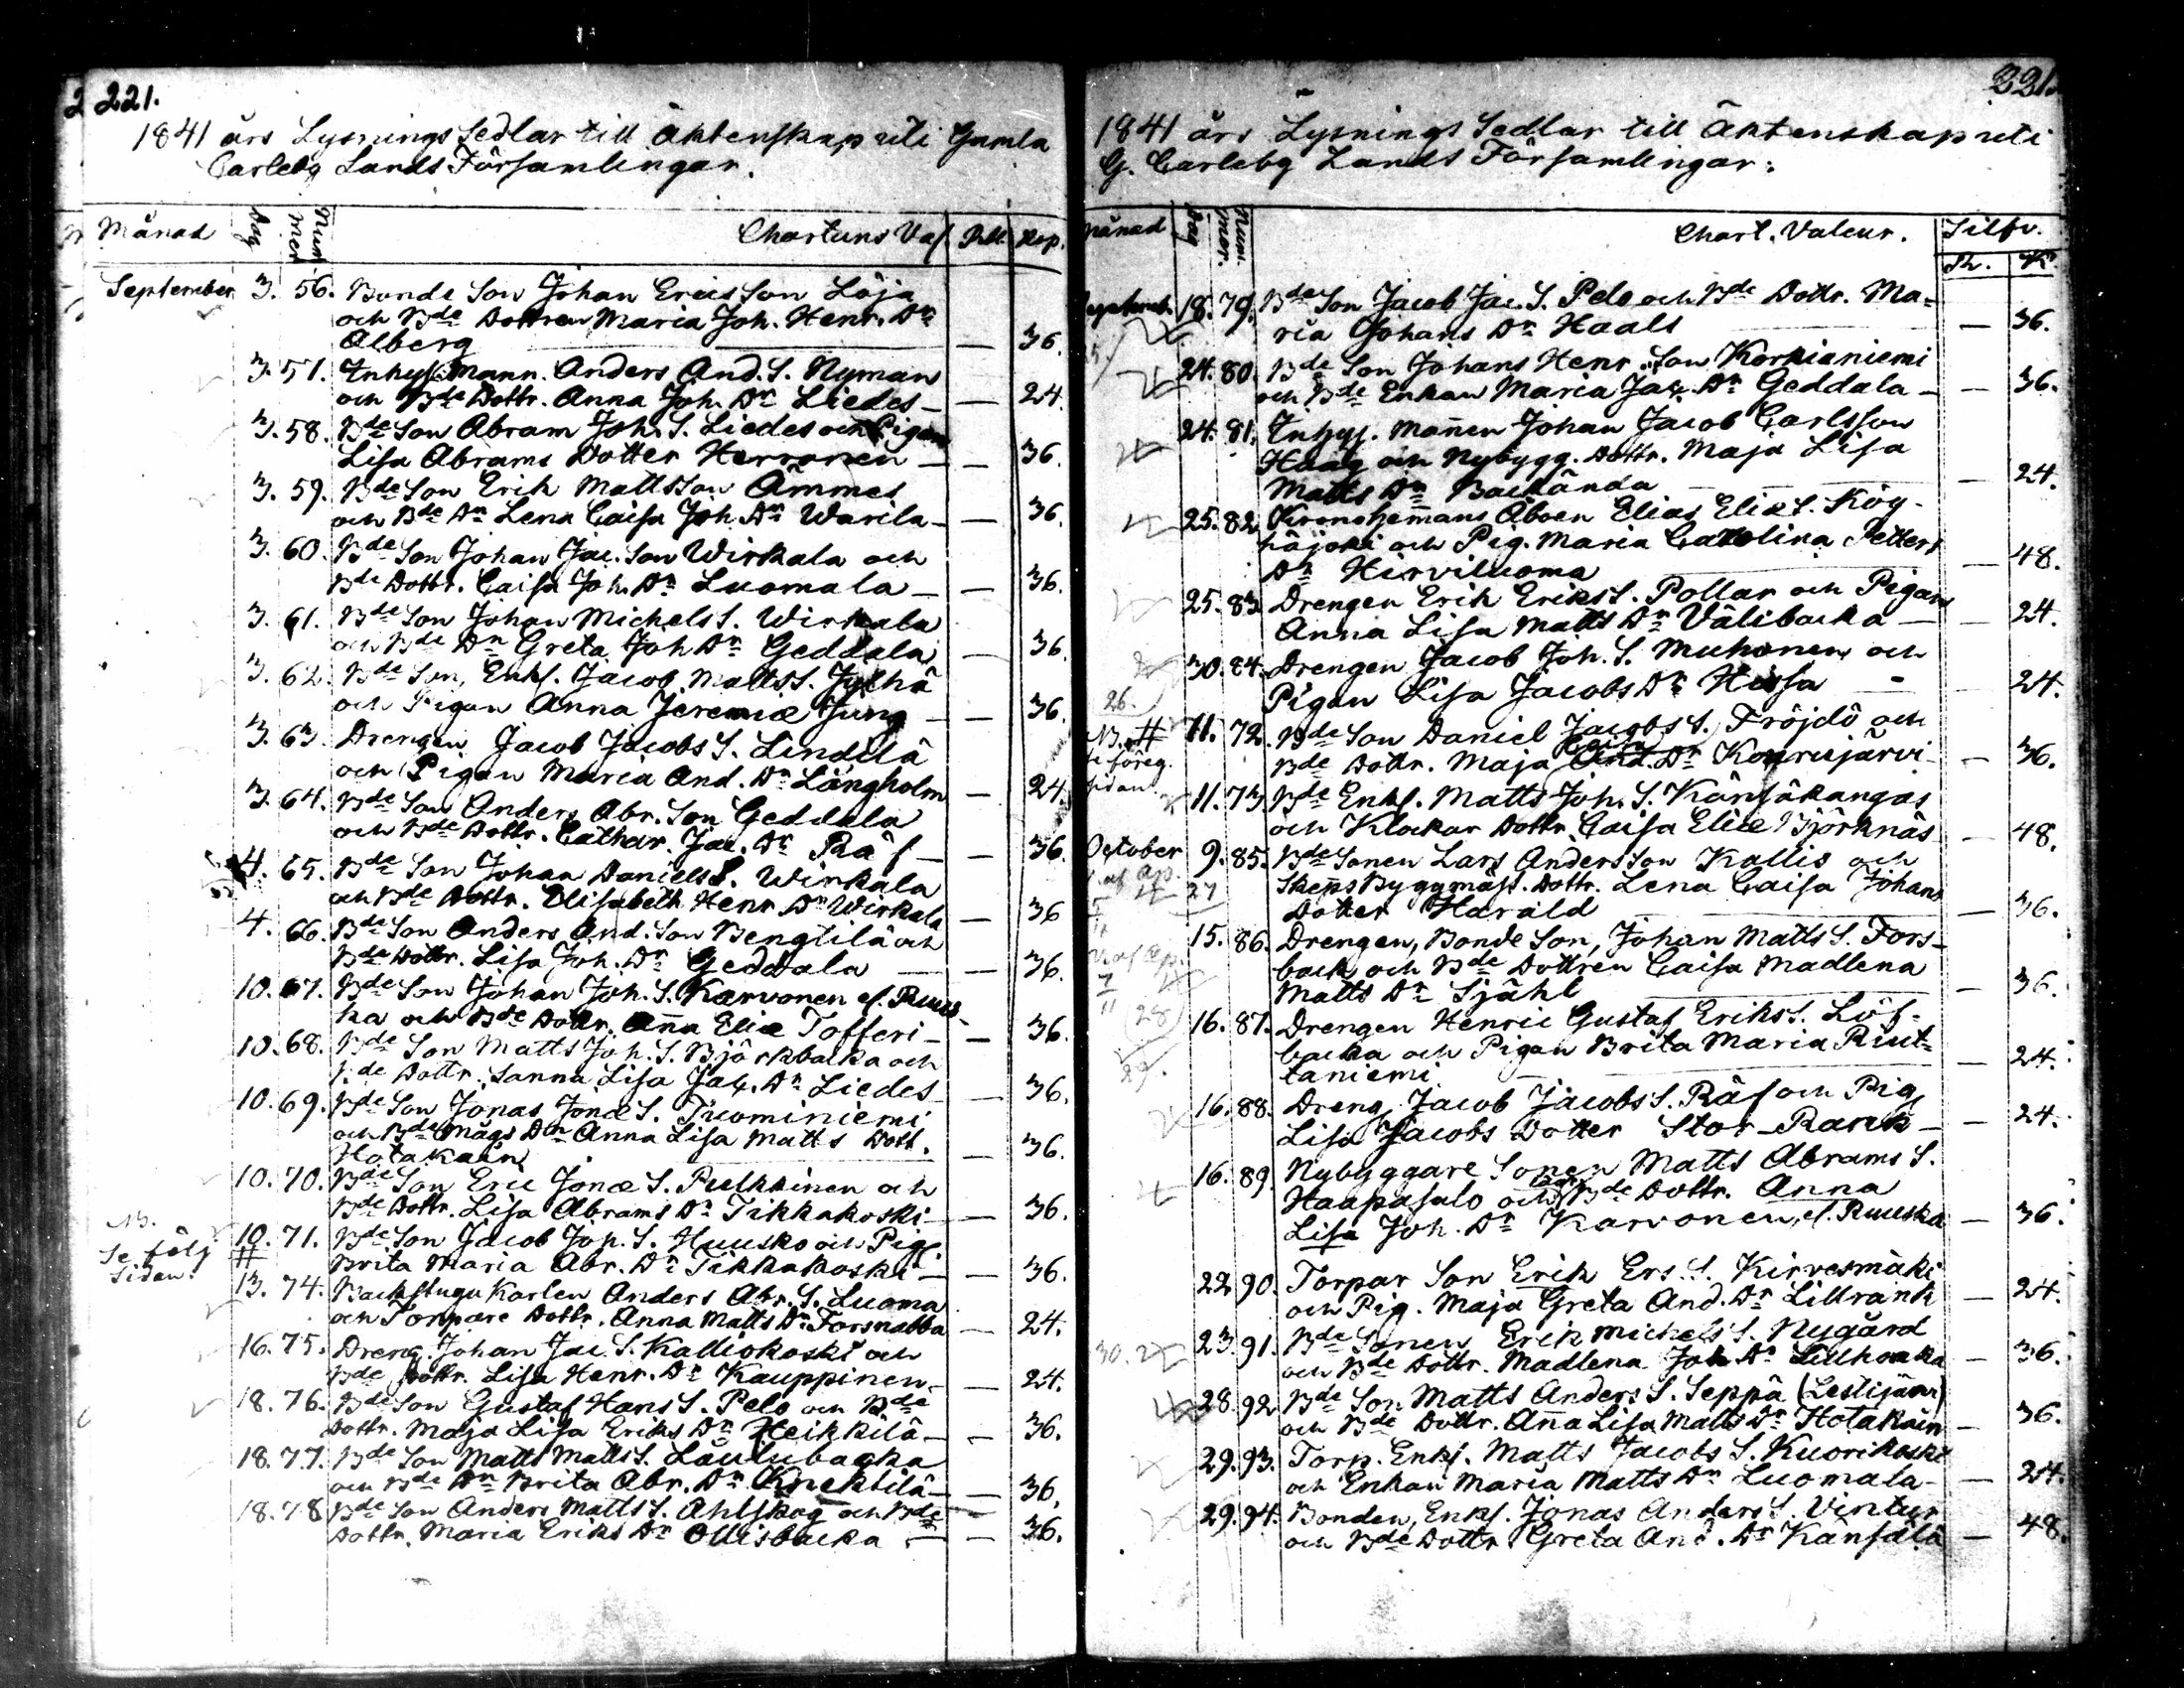 221.
1841 års Lysnings Sedlar till Äktenskap uti Gamla
Carleby Lands Församlingar.
Månad Dag Num mer Chartans Val Rub. Kop.
September 3. 56. Bonde Son Johan Ericsson Löja
och Bde Dottren Maria Joh. Henr. Dr
Alberg — 36.
3. 57. Inhys. Mann. Anders And. S. Nyman
och Bde Dottr. Anna Joh. Dr Liedes — — 24.
3. 58. Bde Son Abram Joh. S. Liedes och Pigan
Lisa Abrams Dotter Herronen — — 36.
3. 59. Bde Son Erik Mattsson Ämmes
och Bde Dr Lena Caisa Joh. Dr Warila — — 36.
3. 60. Bde Son Johan Jac. Son Wirkala och
Bde Dottr. Caisa Joh. Dr Luomala — — 36.
3. 61. Bde Son Johan Michels S. Wirkala
och Bde Dr Greta Joh Dr Geddala — 36.
3. 62. Bde Son, Enkl. Jacob Matts S. Jylhä
och Pigan Anna Jeremiæ Jung — — 36.
3. 63. Drengen Jacob Jacobs S. Lindelä
och Pigan Maria And. Dr Långholm — 24.
3. 64. Bde Son Anders Abr. Son Geddala
och Bde Dottr. Cathar. Jac. Dr Räf — — 36.
4. 65. Bde Son Johan Daniels S. Wirkala
och Bde Dottr. Elisabeth Henr Dr Wirkala — 36
4. 66. Bde Son Anders And. Son Bengtilä och
Bde Dottr. Lisa Joh. Dr Geddala — — 36.
10. 67. Bde Son Johan Joh. S. Karvonen el. Ruus-
ka och Bde Dottr. Anna Eliæ Tofferi — — 36.
10. 68. Bde Son Matts Joh. S. Björkbacka och
Bde Dottr. Sanna Lisa Jac. Dr Liedes — 36.
10. 69. Bde Son Jonas Jonæ S. Tuominiemi
och Bde Mågs Dr Anna Lisa Matts Dott.
Hotakain — 36.
10. 70. Bde Son Eric Jonæ S. Pulkkinen och
Bde Dottr. Lisa Abrams Dr Tikkakoski — — 36.
NB.
Se följ
Sidan.
10. 71. Bde Son Jacob Joh. S. Huusko och Pig.
# Brita Maria Abr. Dr Tikkakoski — — 36.
13. 74. Backstugu Karlen Anders Abr. S. Luoma
och Torpare Dottr. Anna Matts Dr Forsnabba — 24.
16. 75. Dreng. Johan Jac. S. Kalliokoski och
Bde Dottr. Lisa Henr. Dr Kauppinen — — 24.
18. 76. Bde Son Gustaf Hans S. Pelo och Bde
Dottr. Maja Lisa Eriks Dr Heikkilä — — 36.
18. 77. Bde Son Matts Matts S. Laulubacka
och Bde Dr Brita Abr. Dr Knektilä — — 36.
18. 78 Bde Son Anders Matts S. Ahlskog och Bde
Dottr. Maria Eriks Dr Ollisbacka — — 36.
221.
1841 års Lysnings Sedlar till Äktenskap uti
G. Carleby Lands Församlingar.
Månad Dag Num mer. Chart. Valeur. Silfv.
R. K.
September 18. 79. Bde Son Jacob Jac. S. Pelo och Bde Dottr. Ma-
ria Johans Dr Haals — 36.
24. 80. Bde Son Johans Henr. Son Korkianiemi
och Bde Enkan Maria Jac. Dr Geddala — — 36.
24. 81. Inhys. Mannen Johan Jacob Carlsson
Haag och Nybygg. Dottr. Maja Lisa
Matts Dr Backända — 24.
25. 82. Kronohemans Åboen Elias Eliæ S. Köy-
häjoki och Pig. Maria Catolina Petters
Dr Hirviluoma — 48.
25. 83 Drengen Erik Eriks S. Pollar och Pigan
Anna Lisa Matts Dr Välibacka — — 24.
30. 84. Drengen Jacob Joh. S. Muhonen och
Pigan Lisa Jacobs Dr Hissa — 24.
26.
NB. #
se föreg.
sidan.
11. 72. Bde Son Daniel Jacobs S. Fröjdö och
Caisa
Bde Dottr. Maja And. Dr Kourujärvi — 36.
11. 73. Bde Enkl. Matts Joh. S. Känsäkangas
och Klockar Dottr. Caisa Eliæ Björknäs — 48.
October 9. 85. Bde Sonen Lars Andersson Kallis och
27 Skeps Byggmäst. Dottr. Lena Caisa Johans
Dotter Harald — 36.
15. 86. Drengen, Bonde Son, Johan Matts S. Fors-
back och Bde Dottren Caisa Madlena
Matts Dr Sjähl — 36.
(28) 16. 87. Drengen Henric Gustaf Eriks S. Löf-
backa och Pigan Brita Maria Ruut-
29. taniemi — 24.
16. 88. Dreng Jacob Jacobs S. Räf och Pig
Lisa Jacobs Dotter Stor-Rank — — 24.
16. 89. Nybyggare Sonen Matts Abrams S.
Haapasalo och Bde Dottr. Anna
Lisa Joh. Dr Karvonen, el. Ruuska — 36.
22 90. Torpar Son Erik Ers. S. Kirvesmäki
och Pig. Maja Greta And. Dr Lillrank — 24.
30. 23. 91. Bde Sonen Erik Michels S. Nygård
och Bde Dottr. Madlena Joh Dr Lillhonka — 36.
28. 92 Bde Son Matts Anders S. Seppä (Lestijärvi)
och Bde Dottr. Anna Lisa Matts Dr Hotakain — 36.
29. 93. Torp. Enkl. Matts Jacobs S. Kuorikoski
och Enkan Maria Matts Dr Luomala — — 24.
29. 94. Bonden, Enkl. Jonas Anders S. Vintur
och Bde Dottr Greta And. Dr Kansälä — 48.